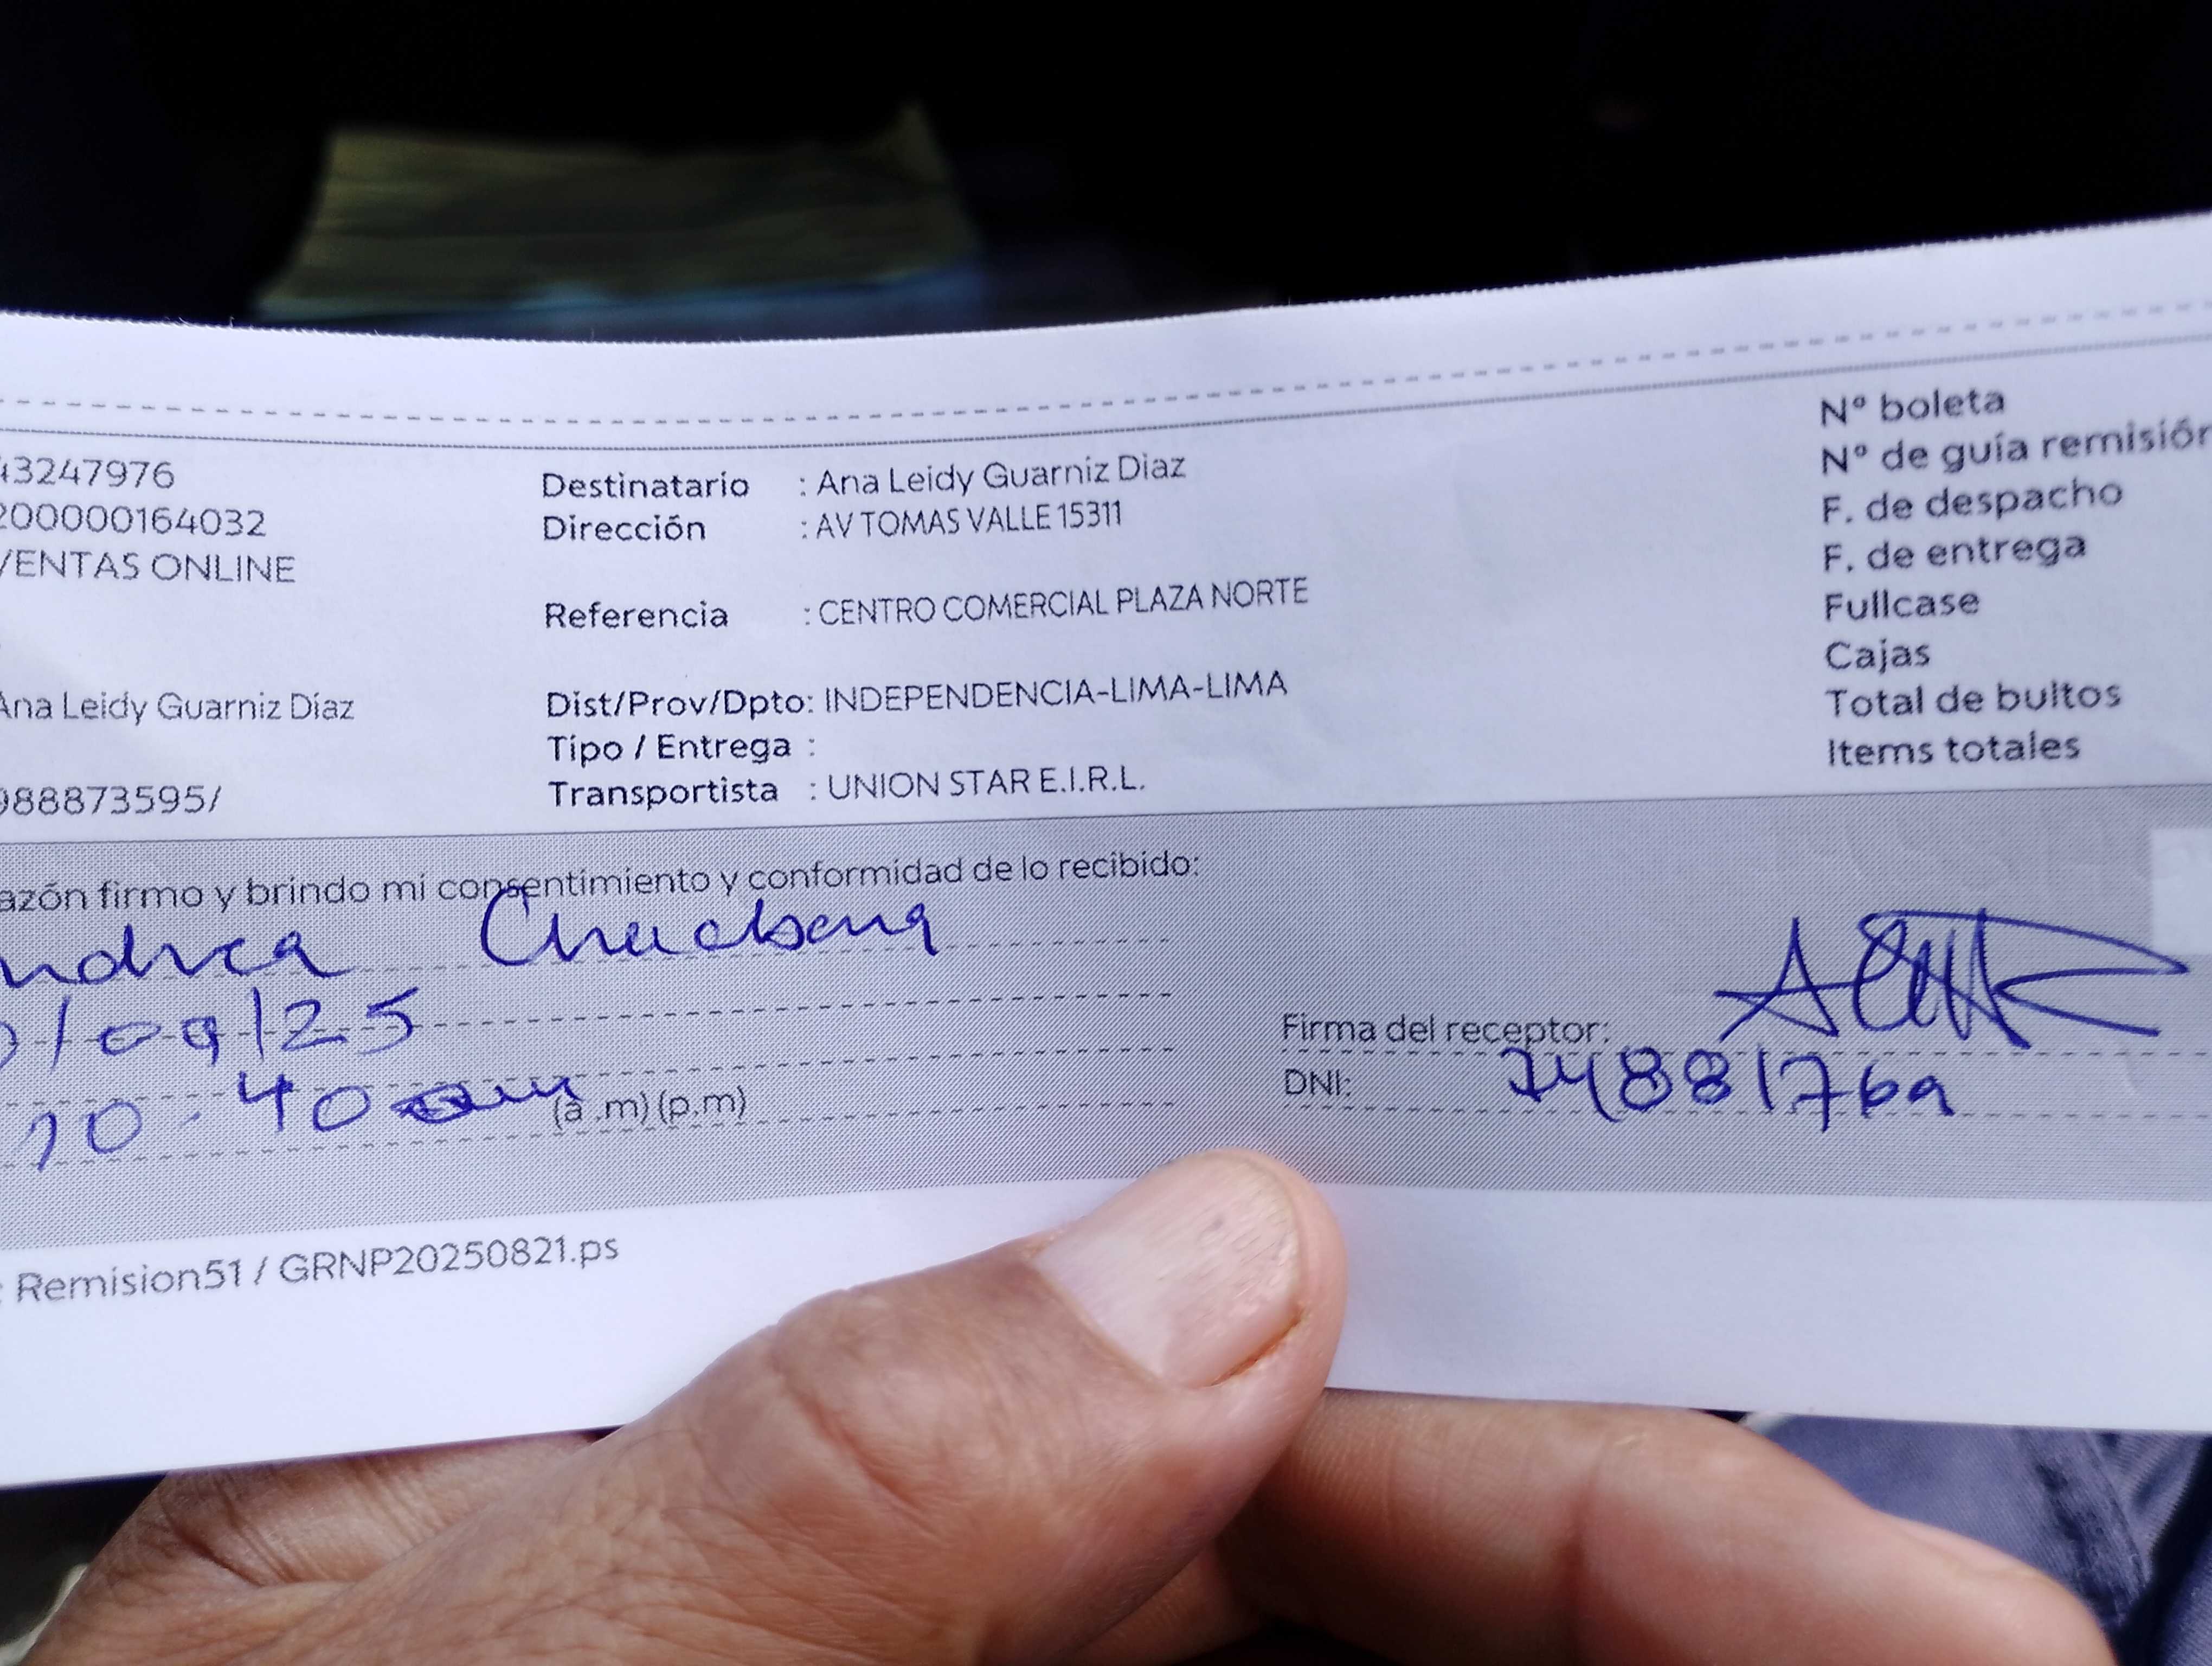 43247976
200000164032
VENTAS ONLINE
Ana Leidy Guarniz Díaz
988873595/
Destinatario : Ana Leidy Guarniz Diaz
Dirección : AV TOMAS VALLE 15311
Referencia : CENTRO COMERCIAL PLAZA NORTE
Dist/Prov/Dpto: INDEPENDENCIA-LIMA-LIMA
Tipo / Entrega :
Transportista : UNION STAR E.I.R.L.
Nº boleta
Nº de guía remisión
F. de despacho
F. de entrega
Fullcase
Cajas
Total de bultos
Items totales
azón firmo y brindo mi consentimiento y conformidad de lo recibido:
ndrea
/09/25
10-40 am (a .m) (p.m)
Firma del receptor:
DNI: 74881769
: Remision51 / GRNP20250821.ps